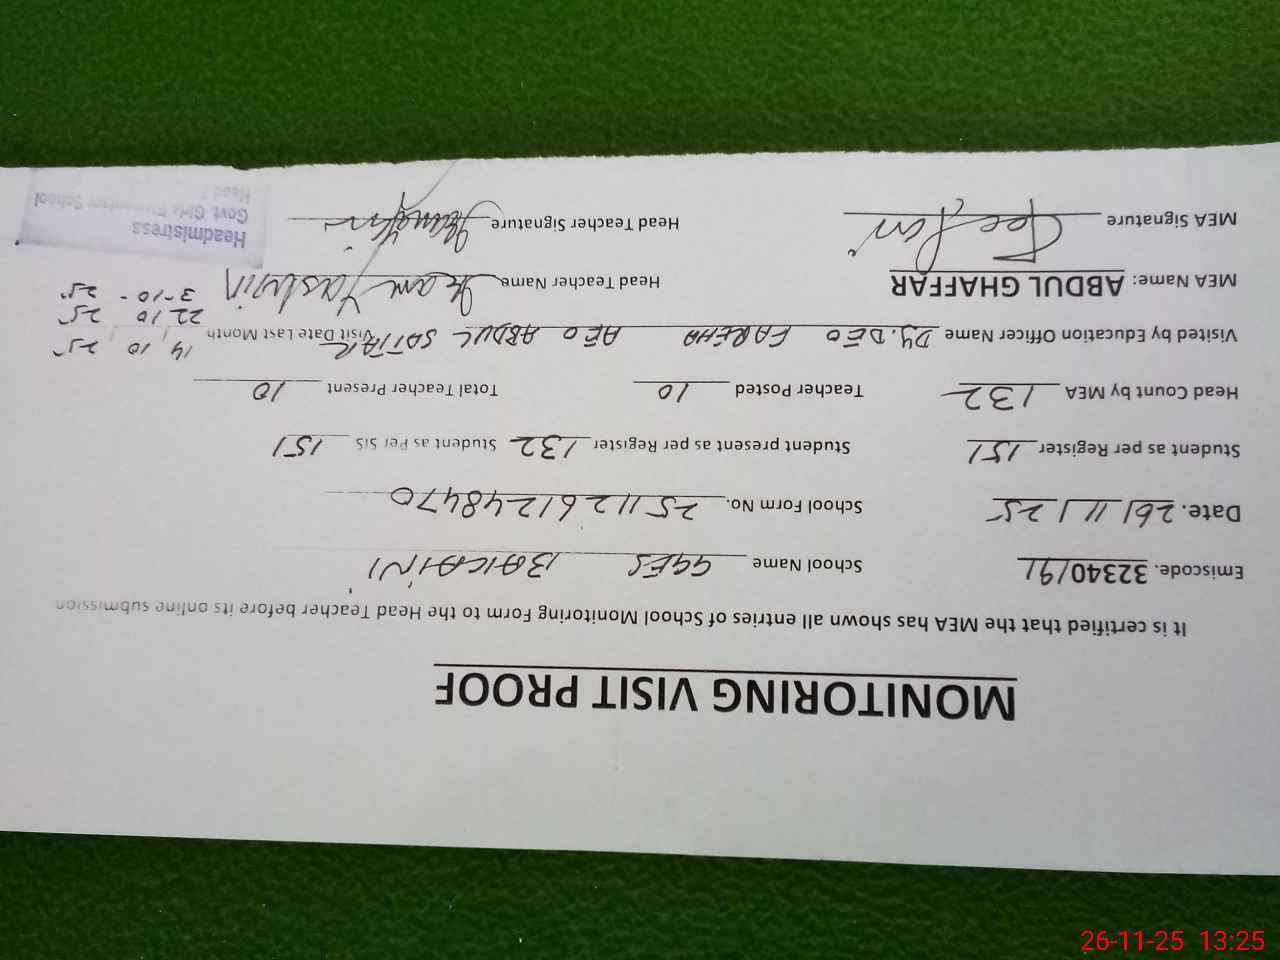 MONITORING VISIT PROOF
It is certified that the MEA has shown all entries of School Monitoring Form to the Head Teacher before its online submission
Emiscode. 32340191 School Name GGES BAKAINI
Date. 26/11/25 School Form No. 2511261248470
Student as per Register 151 Student as present per Register 132 Student as Per SIS 151
Head Count by MEA 132 Teacher Posted 10 Total Teacher Present 10
Visited by Education Officer Name Dy. DEO FAREHA AEO ABDUL SATTAR Visit Date Last Month 14 10 25
22 10 25
3-10-25
MEA Name: ABDUL GHAFFAR Head Teacher Name Yasmin
MEA Signature Head Teacher Signature
Headmistress
Govt. Girls Elementary School
26-11-25 13:25